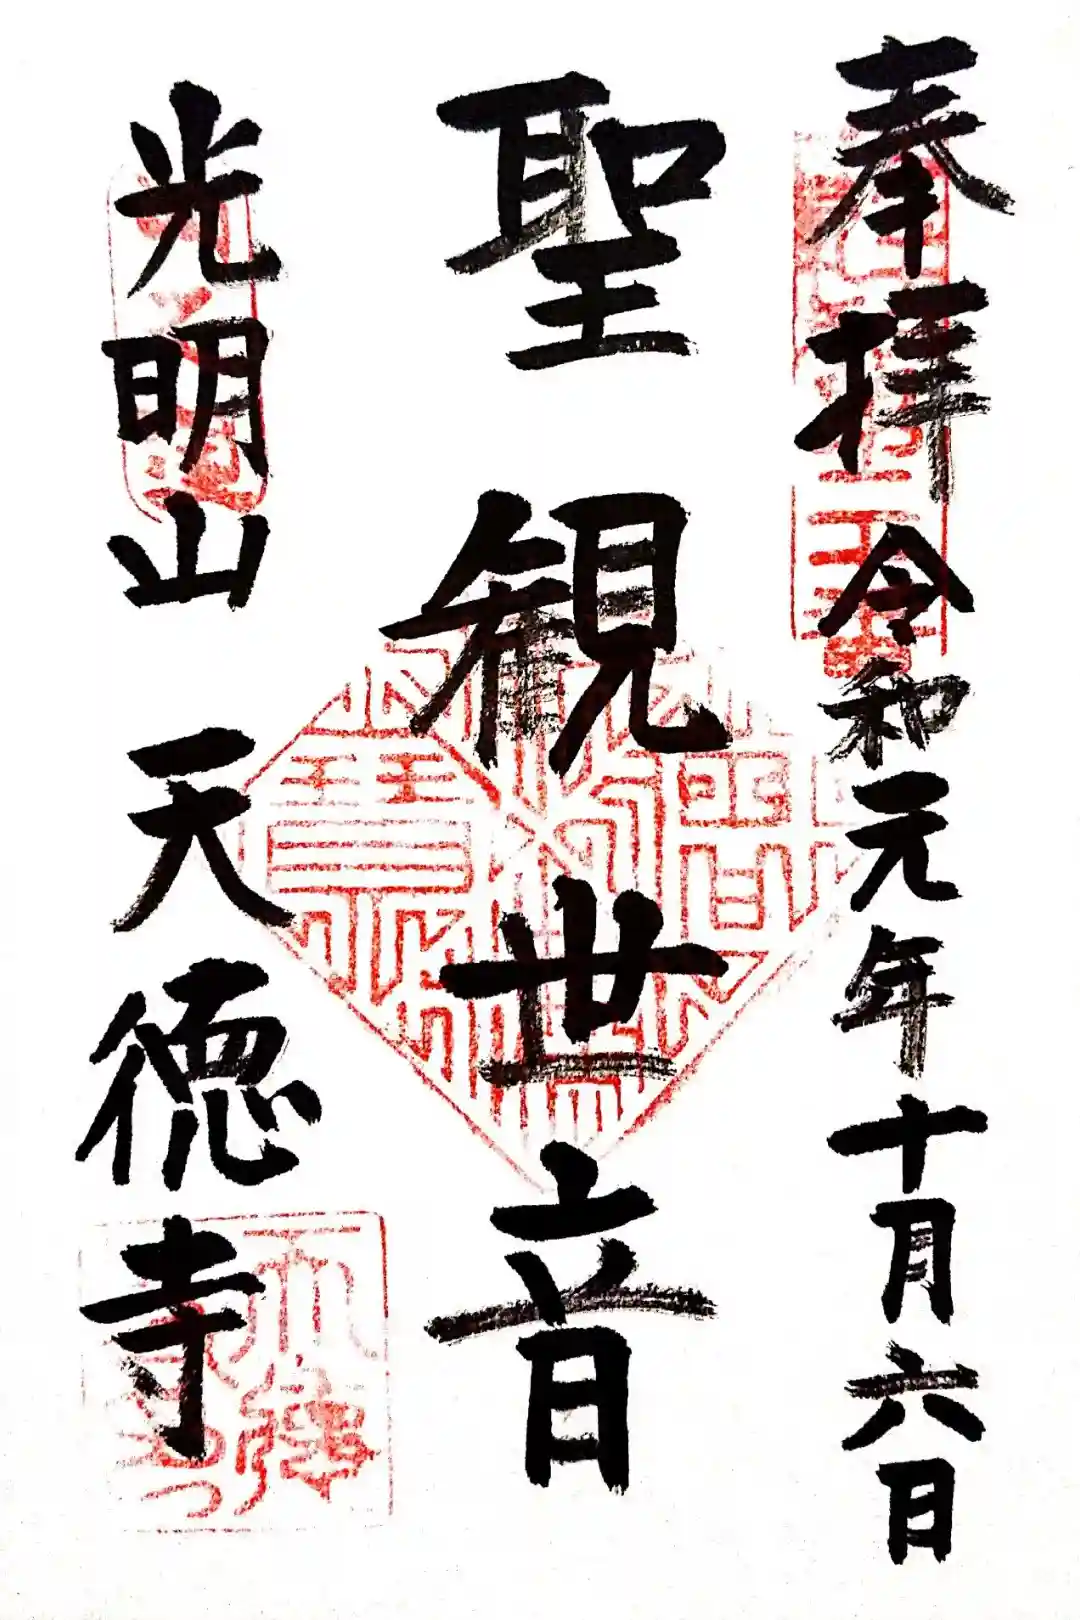 奉拝 令和元年十月六日
聖観世音
光明山天徳寺